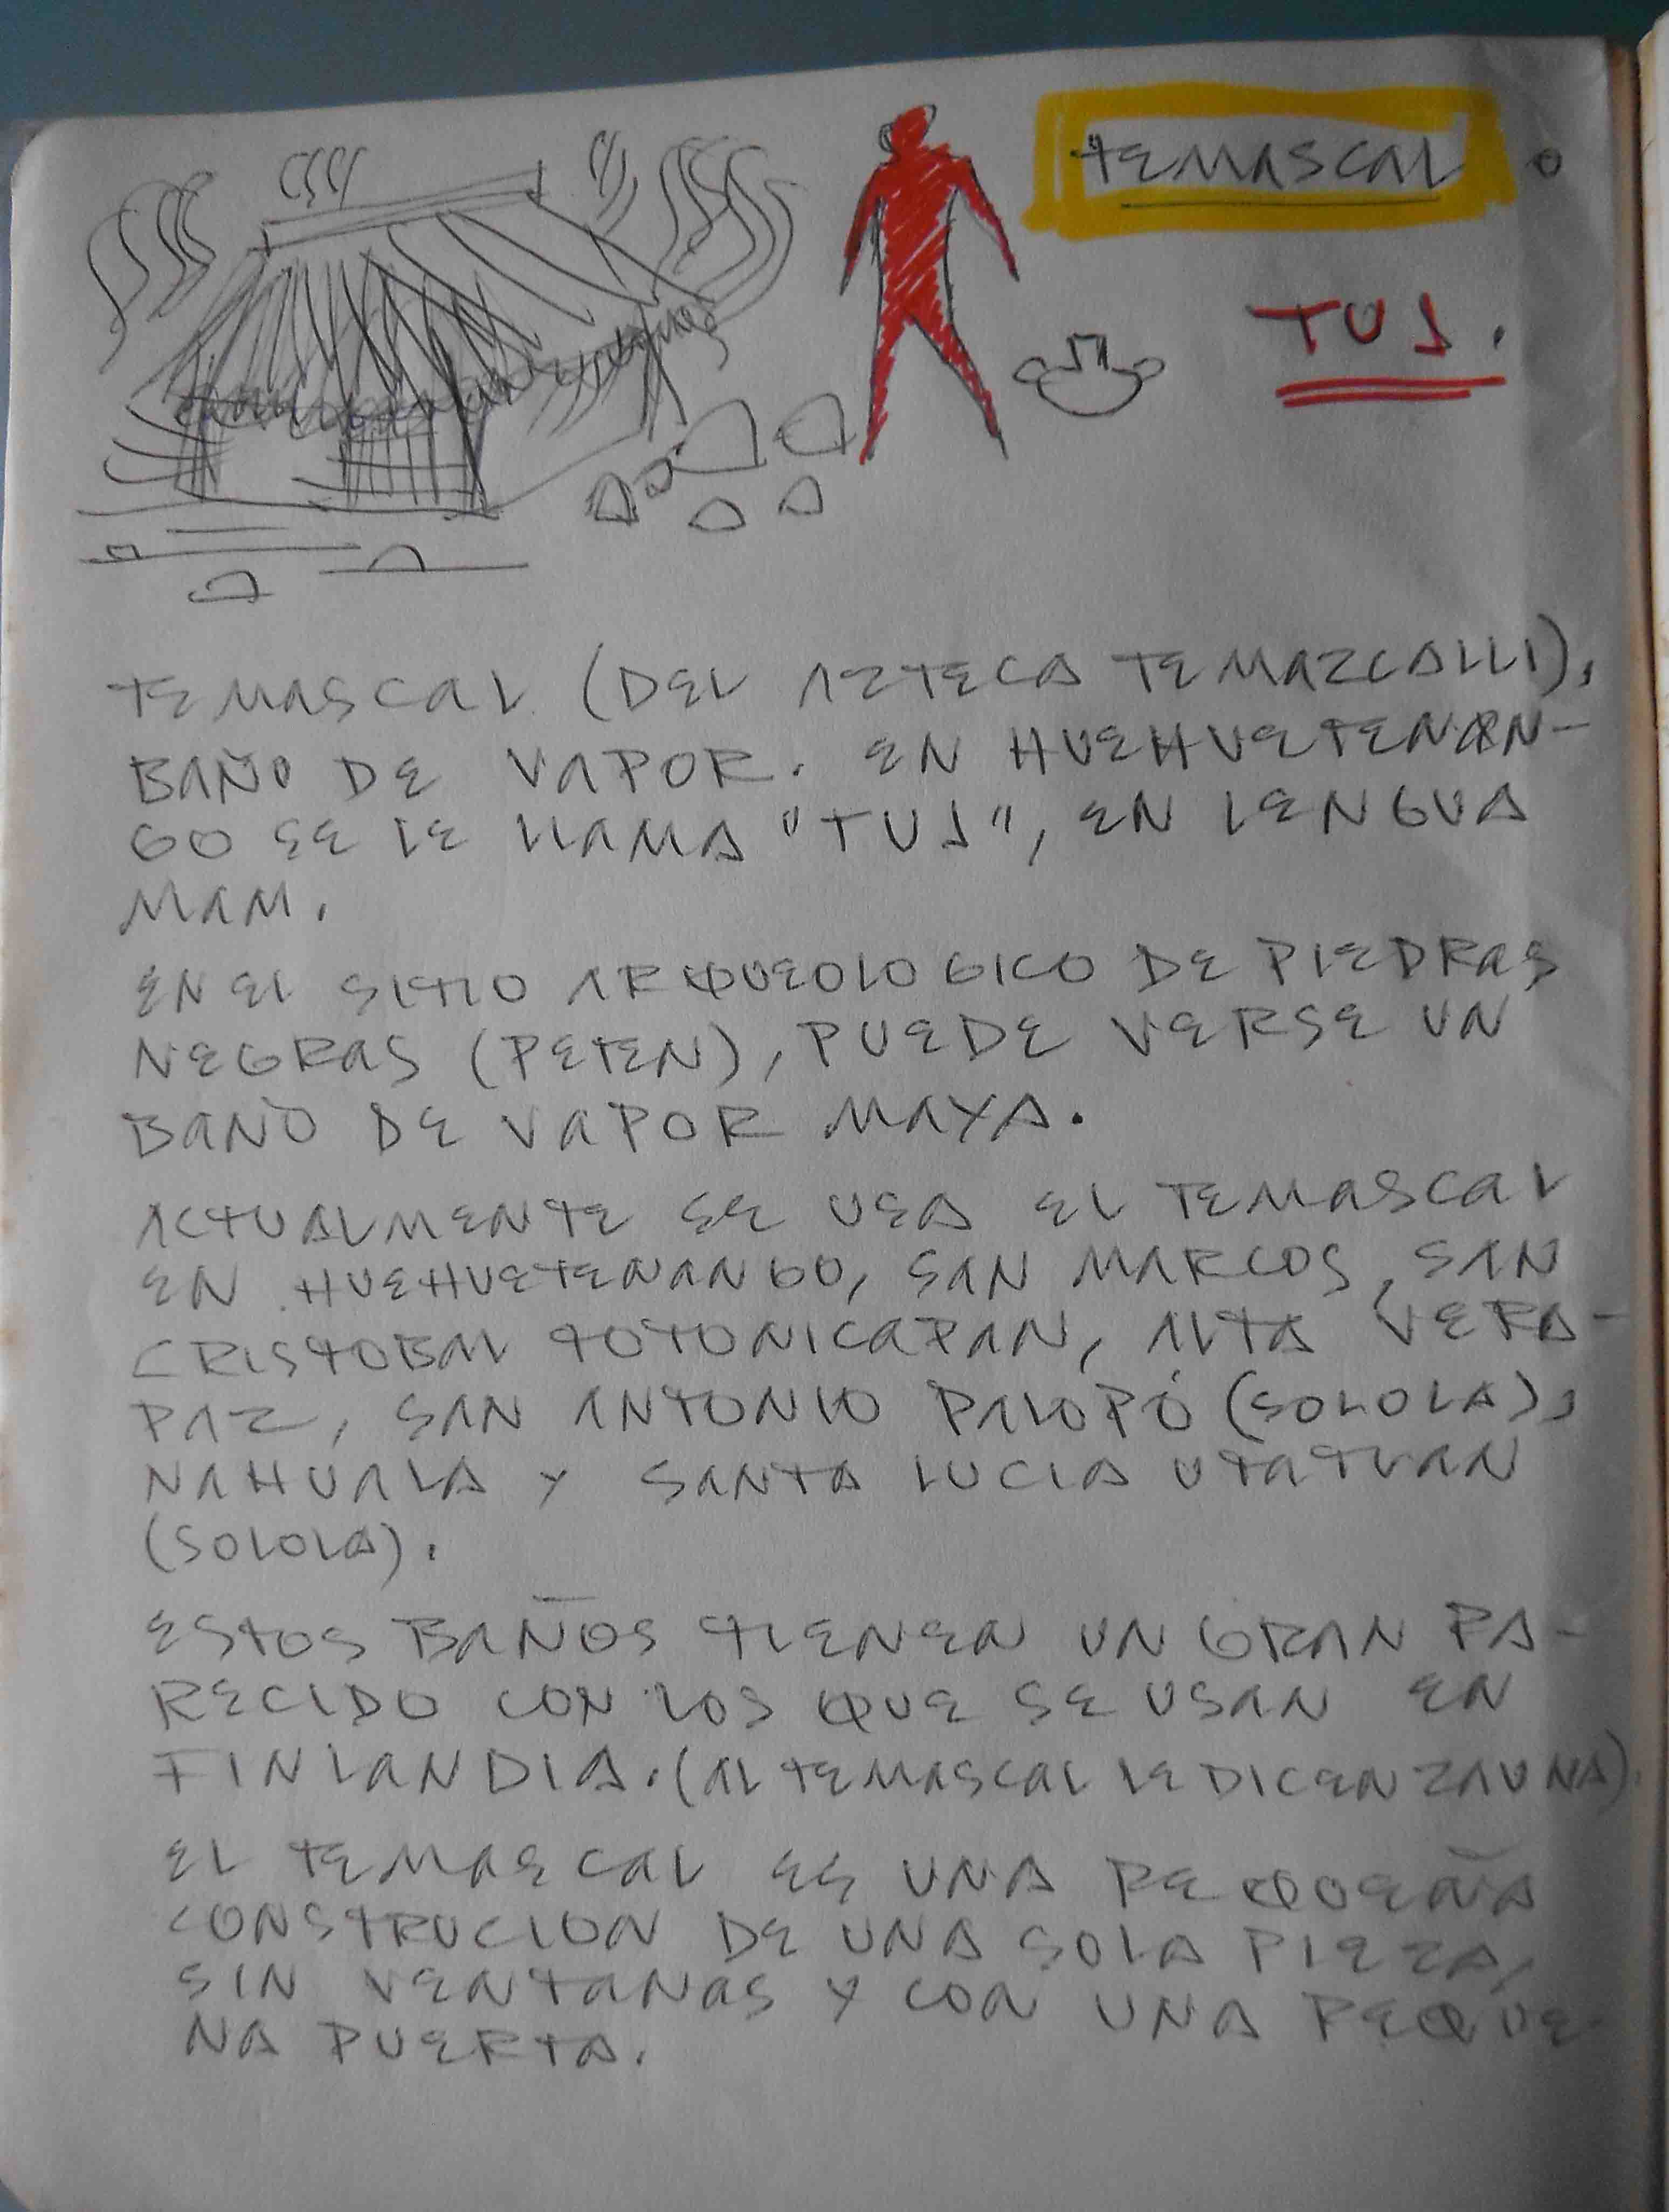 TEMASCAL o
TUJ.
TEMASCAL (DEL AZTECA TEMAZCALLI),
BAÑO DE VAPOR. EN HUEHUETENAN-
GO SE LE LLAMA "TUJ", EN LENGUA
MAM.
EN EL SITIO ARQUEOLOGICO DE PIEDRAS
NEGRAS (PETEN), PUEDE VERSE UN
BAÑO DE VAPOR MAYA.
ACTUALMENTE SE USA EL TEMASCAL
EN HUEHUETENANGO, SAN MARCOS, SAN
CRISTOBAL TOTONICAPAN, ALTA VERA-
PAZ, SAN ANTONIO PALOPÓ (SOLOLA),
NAHUALA Y SANTA LUCIA UTATLAN
(SOLOLA).
ESTOS BAÑOS TIENEN UN GRAN PA-
RECIDO CON LOS QUE SE USAN EN
FINLANDIA. (AL TEMASCAL LE DICEN ZAUNA).
EL TEMASCAL ES UNA PEQUEÑA
CONSTRUCION DE UNA SOLA PIEZA,
SIN VENTANAS Y CON UNA PEQUE-
NA PUERTA.